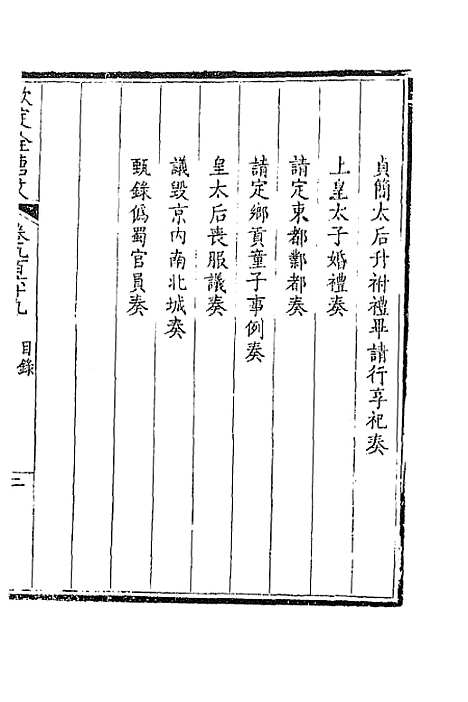 貞簡太后升祔禮畢請行享祀奏
上皇太子婚禮奏
請定東都鄴都奏
請定鄉貢童子事例奏
皇太后喪服議奏
議毀京內南北城奏
甄錄偽蜀官員奏
欽定全唐文
卷九百六十九
目錄
二